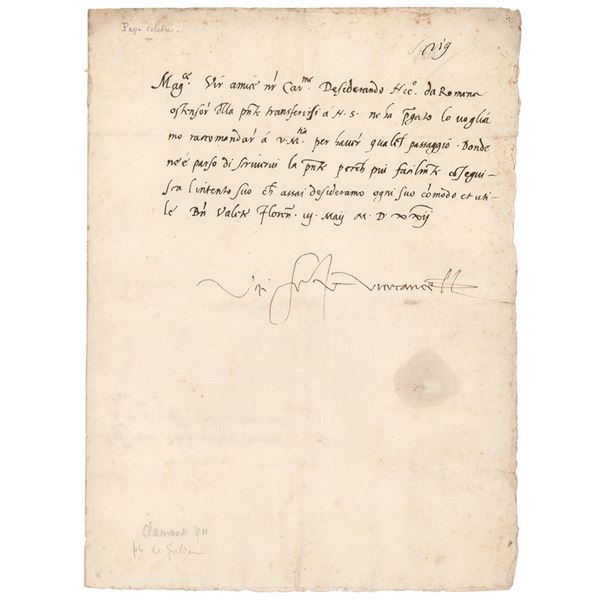 Papa celebre.
Magᶜᵉ. Vir amice nr̄ Carᵐᵉ. Desiderando Hicᵒ. da Romena
ostensor dlla pn̄te transferirsi á N. S. ne ha p̄gato lo voglia
mo racomandar á v. Mᵗⁱᵃ per haver qualch̄ passaggio. Donde
ne é parso di scrivervi la pn̄te perch̄ piu facilmt̄e cōsegui-
sca l intento suo ch̄ assai desideramo ogni suo cōmodo et uti-
le Bn̄ Valete Floren̄. vj. Maij M. D xxij
Vicecancell
Clement VII
fils de Julien